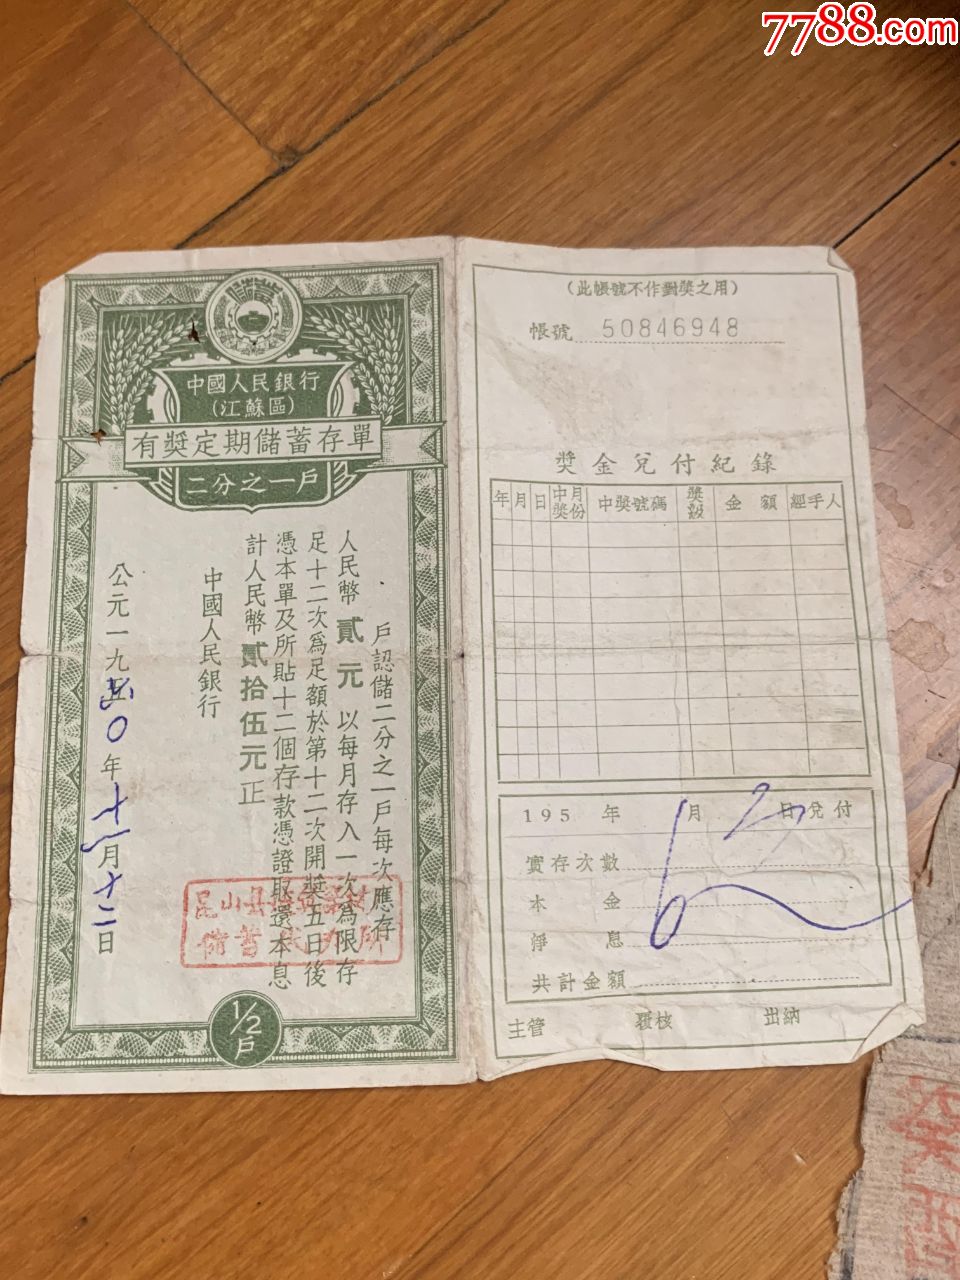 7788.com
中國人民銀行
(江蘇區)
有獎定期儲蓄存單
二分之一戶
戶認儲二分之一戶每次應存
人民幣貳元以每月存入一次為限存
足十二次爲足額於第十二次開獎五日後
憑本單及所貼十二個存款憑證取還本息
計人民幣貳拾伍元正
中國人民銀行
公元一九五 0年十一月十二日
昆山县
儲蓄
1/2
戶
(此帳號不作對獎之用)
帳號 50846948
獎金兌付紀錄
年 月 日 中獎月份 中獎號碼 獎級 金額 經手人
195 年 月 日兌付
實存次數
本金
淨息
共計金額
主管 覆核 出納